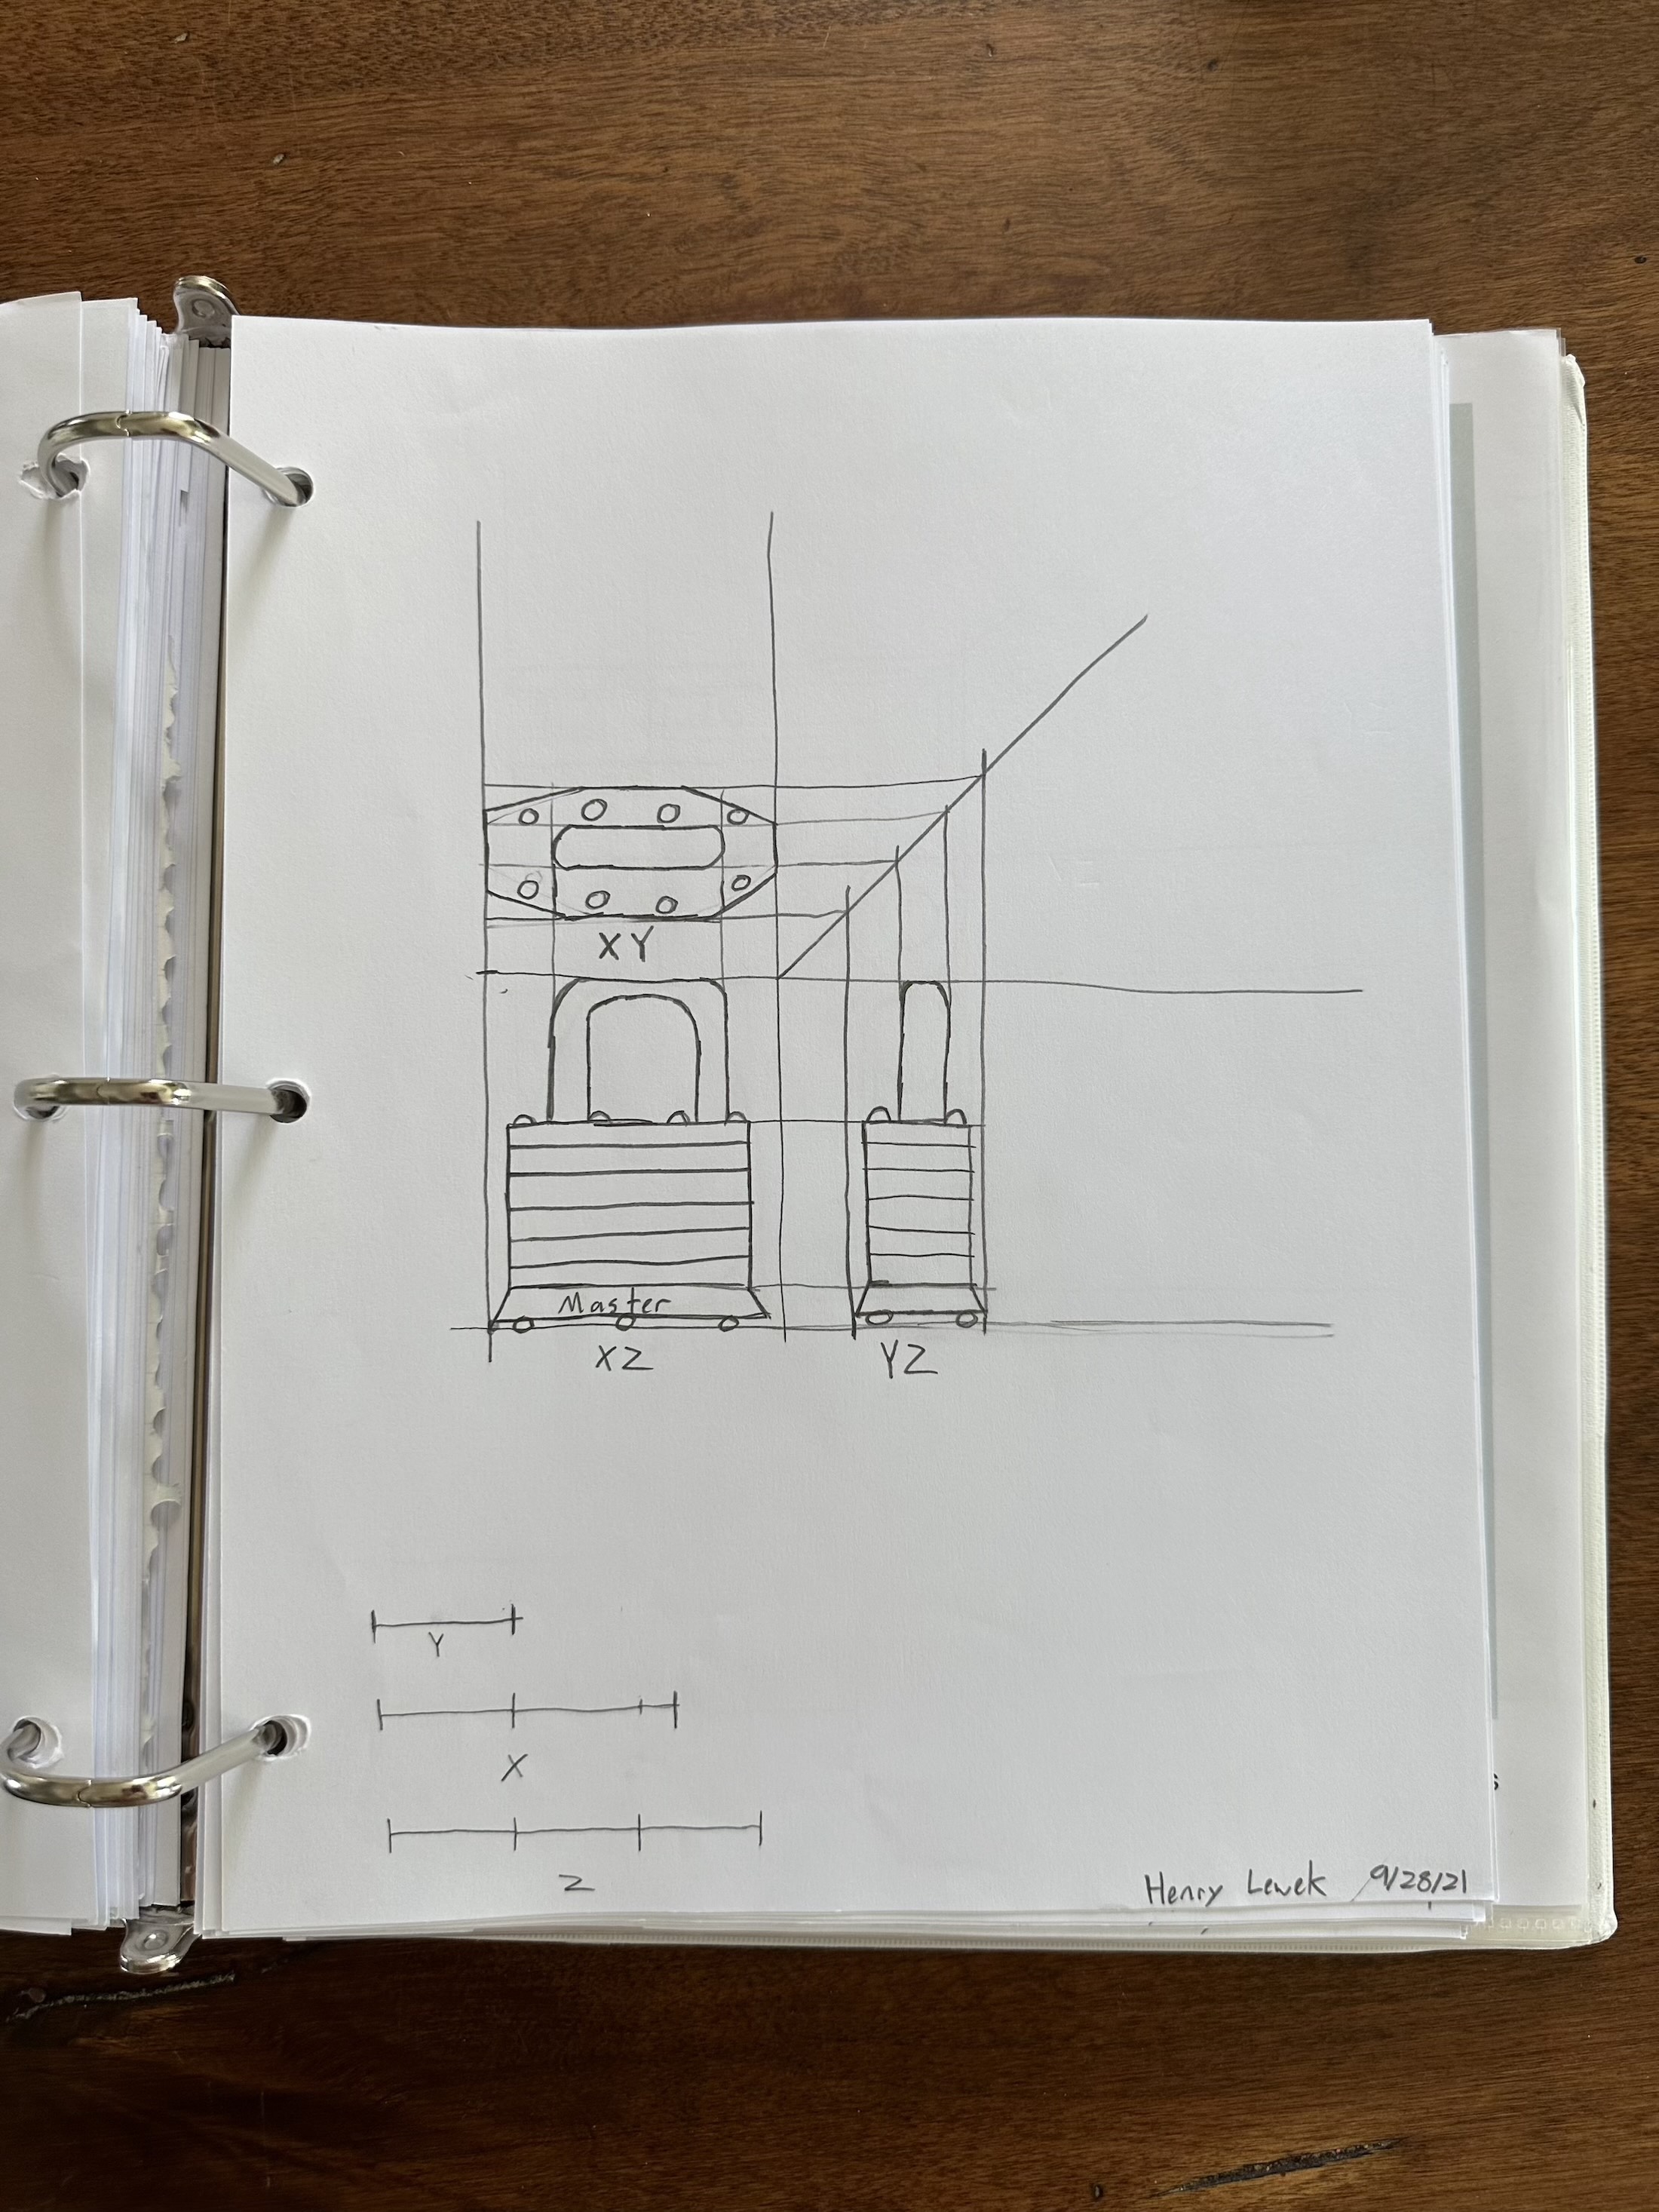 XY
Master
XZ
YZ
Y
X
Z
Henry Lewek 9/28/21
s